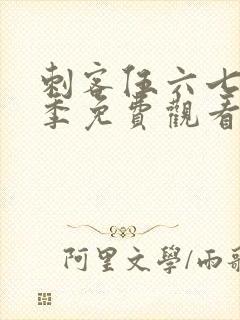 刺客伍六七
季免費觀看
阿里文學/雨歌